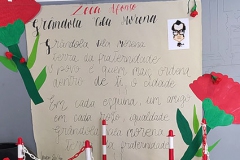 Zeca Afonso
Grândola Vila Morena
Grândola Vila Morena
Terra da fraternidade
O povo é quem mais ordena
Dentro de ti, ó cidade
Em cada esquina um amigo
Em cada rosto igualdade
Grândola Vila Morena
Terra da fraternidade